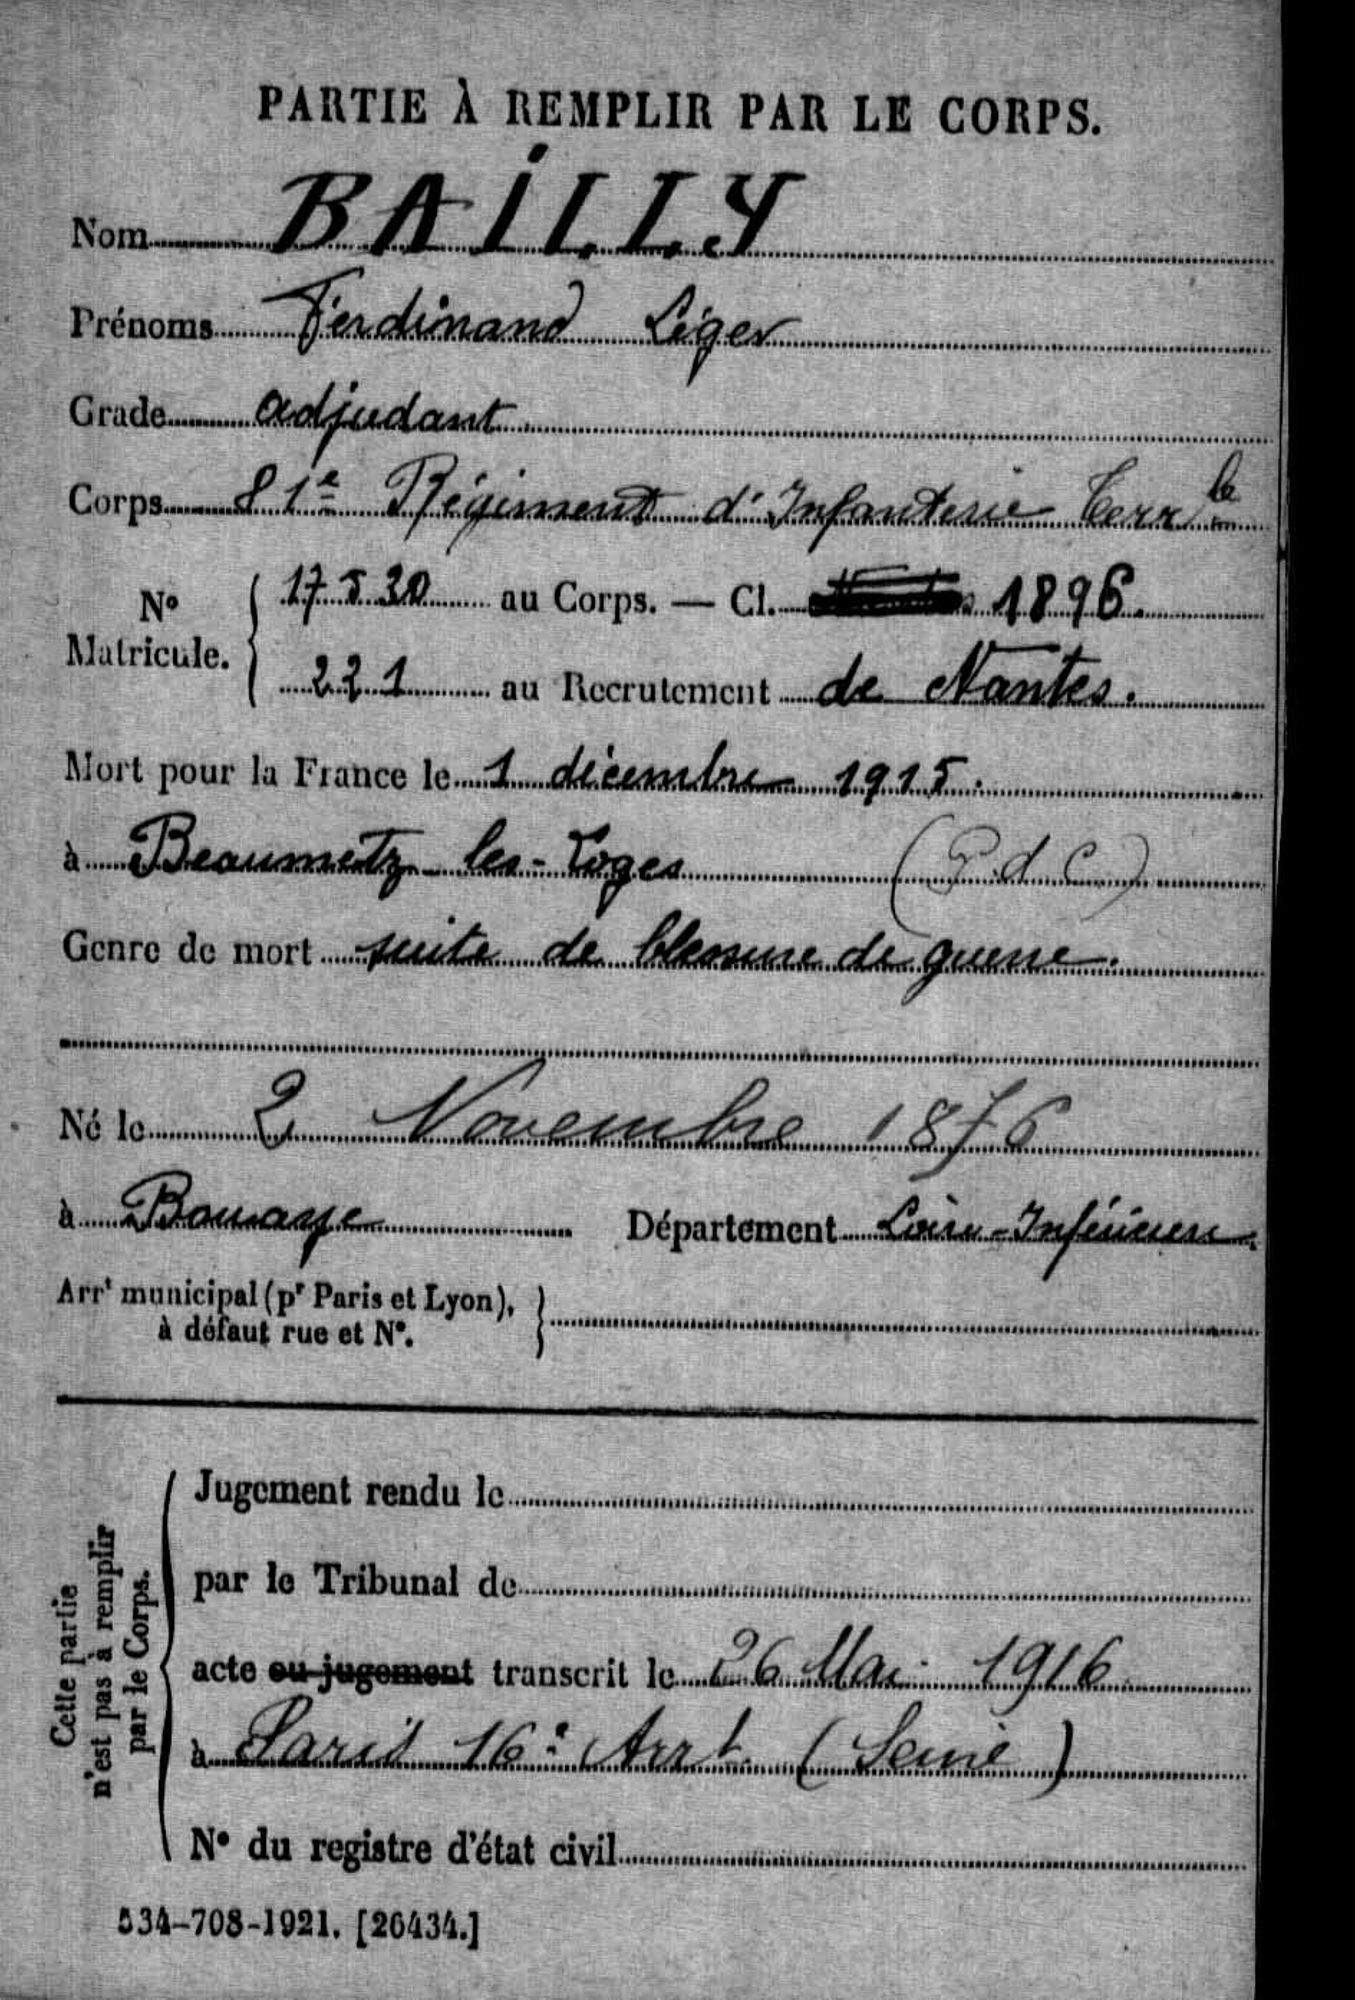 PARTIE À REMPLIR PAR LE CORPS.
Nom BAILLY
Prénoms Ferdinand Léger
Grade adjudant
Corps 81e Régiment d'Infanterie Terrle
No Matricule. 17530 au Corps. — Cl. 1896.
221 au Recrutement de Nantes.
Mort pour la France le 1 décembre 1915.
à Beaumetz-les-Loges (P d C)
Genre de mort suite de blessure de guerre.
Né le 2 Novembre 1876
à Bouaye Département Loire-Inférieure.
Arrt municipal (pr Paris et Lyon),
à défaut rue et No.
Cette partie
n'est pas à remplir
par le Corps.
Jugement rendu le
par le Tribunal de
acte ou jugement transcrit le 26 Mai 1916
à Paris 16e Arrt (Seine)
No du registre d'état civil
534-708-1921. [26434.]